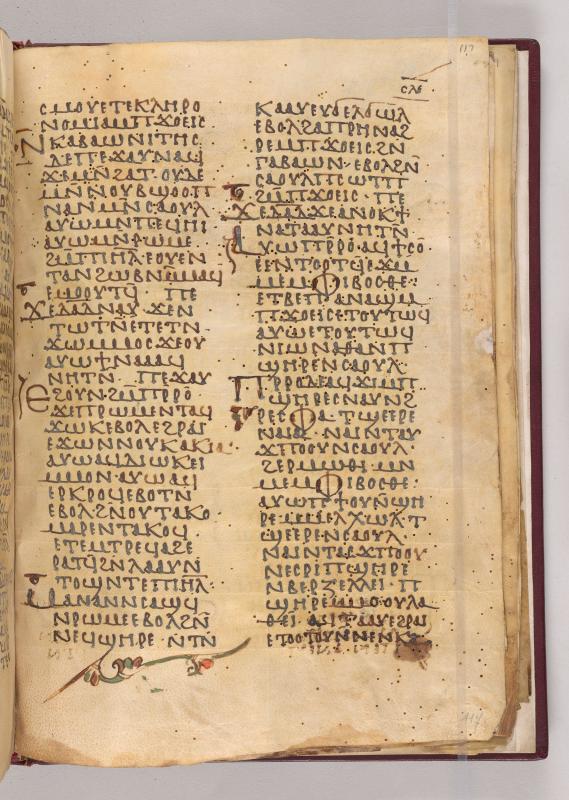 ⲥⲗⲉ
ⲥⲙⲟⲩⲉⲧⲉⲕⲗⲏⲣⲟ
ⲛⲟⲙⲓⲁⲙⲡϫⲟⲉⲓⲥ
ⲕⲁⲃⲁⲱⲛⲓⲧⲏⲥ
ⲇⲉⲡⲉϫⲁⲩⲛⲁϥ
ϫⲉⲙⲛ̄ϩⲁⲧ·ⲟⲩⲇⲉ
ⲙⲛ̄ⲛⲟⲩⲃϣⲟⲟⲡ
ⲛⲁⲛⲙⲛ̄ⲥⲁⲟⲩⲗ
ⲁⲩⲱⲙⲛⲡⲉϥⲏⲓ
ⲁⲩⲱⲙⲛ̄ⲣⲱⲙⲉ
ϩⲙ̄ⲡⲓⲏⲗⲉⲟⲩⲉⲛ
ⲧⲁⲛϩⲱⲃⲛⲙⲙⲁϥ
ⲉⲙⲟⲟⲩⲧϥ̄· ⲡⲉ
ϫⲉⲇⲁⲇⲛⲁⲩ ϫⲉⲛ
ⲧⲱⲧⲛ̄ⲡⲉⲧⲉⲧⲛ
ϫⲱⲙⲙⲟⲥϫⲉⲟⲩ
ⲁⲩⲱϯⲛⲁⲁⲁϥ
ⲛⲏⲧⲛ· ⲡⲉϫⲁⲩ
ⲉϩⲟⲩⲛϩⲙ̄ⲡⲣⲣⲟ
ϫⲉⲡⲣⲱⲙⲉⲛⲧⲁϥ
ϫⲱⲕⲉⲃⲟⲗⲉϩⲣⲁⲓ
ⲉϫⲱⲛⲛⲟⲩⲕⲁⲕⲓⲁ·
ⲁⲩⲱⲁϥⲇⲓⲱⲕⲉⲓ
ⲙⲙⲟⲛ·ⲁⲩⲱⲁϥ
ⲉⲣⲕⲣⲟϥⲉⲃⲟⲧⲛ̄
ⲉⲃⲟⲗϩⲛⲟⲩⲧⲁⲕⲟ
ⲙⲁⲣⲉⲛⲧⲁⲕⲟϥ
ⲉⲧⲉⲙⲧⲣⲉϥⲁϩⲉ
ⲣⲁⲧϥ̄ϩⲛ̄ⲗⲁⲁⲩⲛ̄
ⲧⲟϣⲛⲧⲉⲡⲓⲏⲗ·
ⲙⲁⲛⲁⲛⲛⲥⲁϣϥ
ⲛⲣⲱⲙⲉⲉⲃⲟⲗϩⲛ̄
ⲛⲉϥϣⲏⲣⲉ·ⲛⲧⲛ
ⲉⲃⲟⲗϩⲁⲡⲣⲏⲛⲁϩ
ⲣⲉⲙⲡϫⲟⲉⲓⲥ·ϩⲛ
ⲅⲁⲃⲁⲱⲛ·ⲉⲃⲟⲗϩⲛ̄
ⲥⲁⲟⲩⲗⲡⲥⲱⲧⲡ
ϩⲙ̄ⲡϫⲟⲉⲓⲥ· ⲡⲉ
ϫⲉⲇⲁⲇϫⲉⲁⲛⲟⲕϯ
ⲛⲁⲧⲁⲁⲩⲛⲏⲧⲛ̄
ⲁⲩⲱⲡⲣⲣⲟ·ⲁϥϯⲥⲟ
ⲙⲉⲙⲫⲓⲃⲟⲥⲑⲉ·
ⲉⲧⲃⲉⲡⲁⲛⲁϣⲙ
ⲡϫⲟⲉⲓⲥⲉⲧⲟⲩⲧⲱϥ
ⲁⲩⲱⲉⲧⲟⲩⲧⲱϥ
ⲛⲓⲱⲛⲁⲑⲁⲛⲡ
ϣⲏⲣⲉⲛⲥⲁⲟⲩⲗ·
ⲡⲣⲣⲟⲇⲉⲁϥϫⲓⲙⲡ
ϣⲏⲣⲉⲥⲛⲁⲩⲛϩ
ⲣⲉⲥⲫⲁ·ⲧϣⲉⲉⲣⲉ
ⲛⲁⲓⲁⲥ·ⲛⲁⲓⲛⲧⲁⲩ
ϫⲡⲟⲟⲩⲛⲥⲁⲟⲩⲗ·
ϩⲉⲣⲙⲱⲑⲓ·ⲙⲛ
ⲙⲉⲙⲫⲓⲃⲟⲥⲑⲉ·
ⲁⲩⲱⲡⲉϯⲟⲩⲛ̄ϣⲏ
ⲣⲉⲙⲙⲉⲗⲭⲱⲗ·ⲧ
ϣⲉⲉⲣⲉⲛⲥⲁⲟⲩⲗ·
ⲛⲁⲓⲛⲧⲁⲥϫⲡⲟⲟⲩ
ⲛⲉⲥⲣⲓⲡϣⲏⲣⲉ
ⲛⲃⲉⲣⲍⲉⲗⲗⲉⲓ·ⲡ
ϣⲏⲣⲉⲙⲙⲟⲟⲩⲗⲁ
ⲑⲉⲓ·ⲁϥⲧⲁⲁⲩⲉϩⲣⲁⲓ